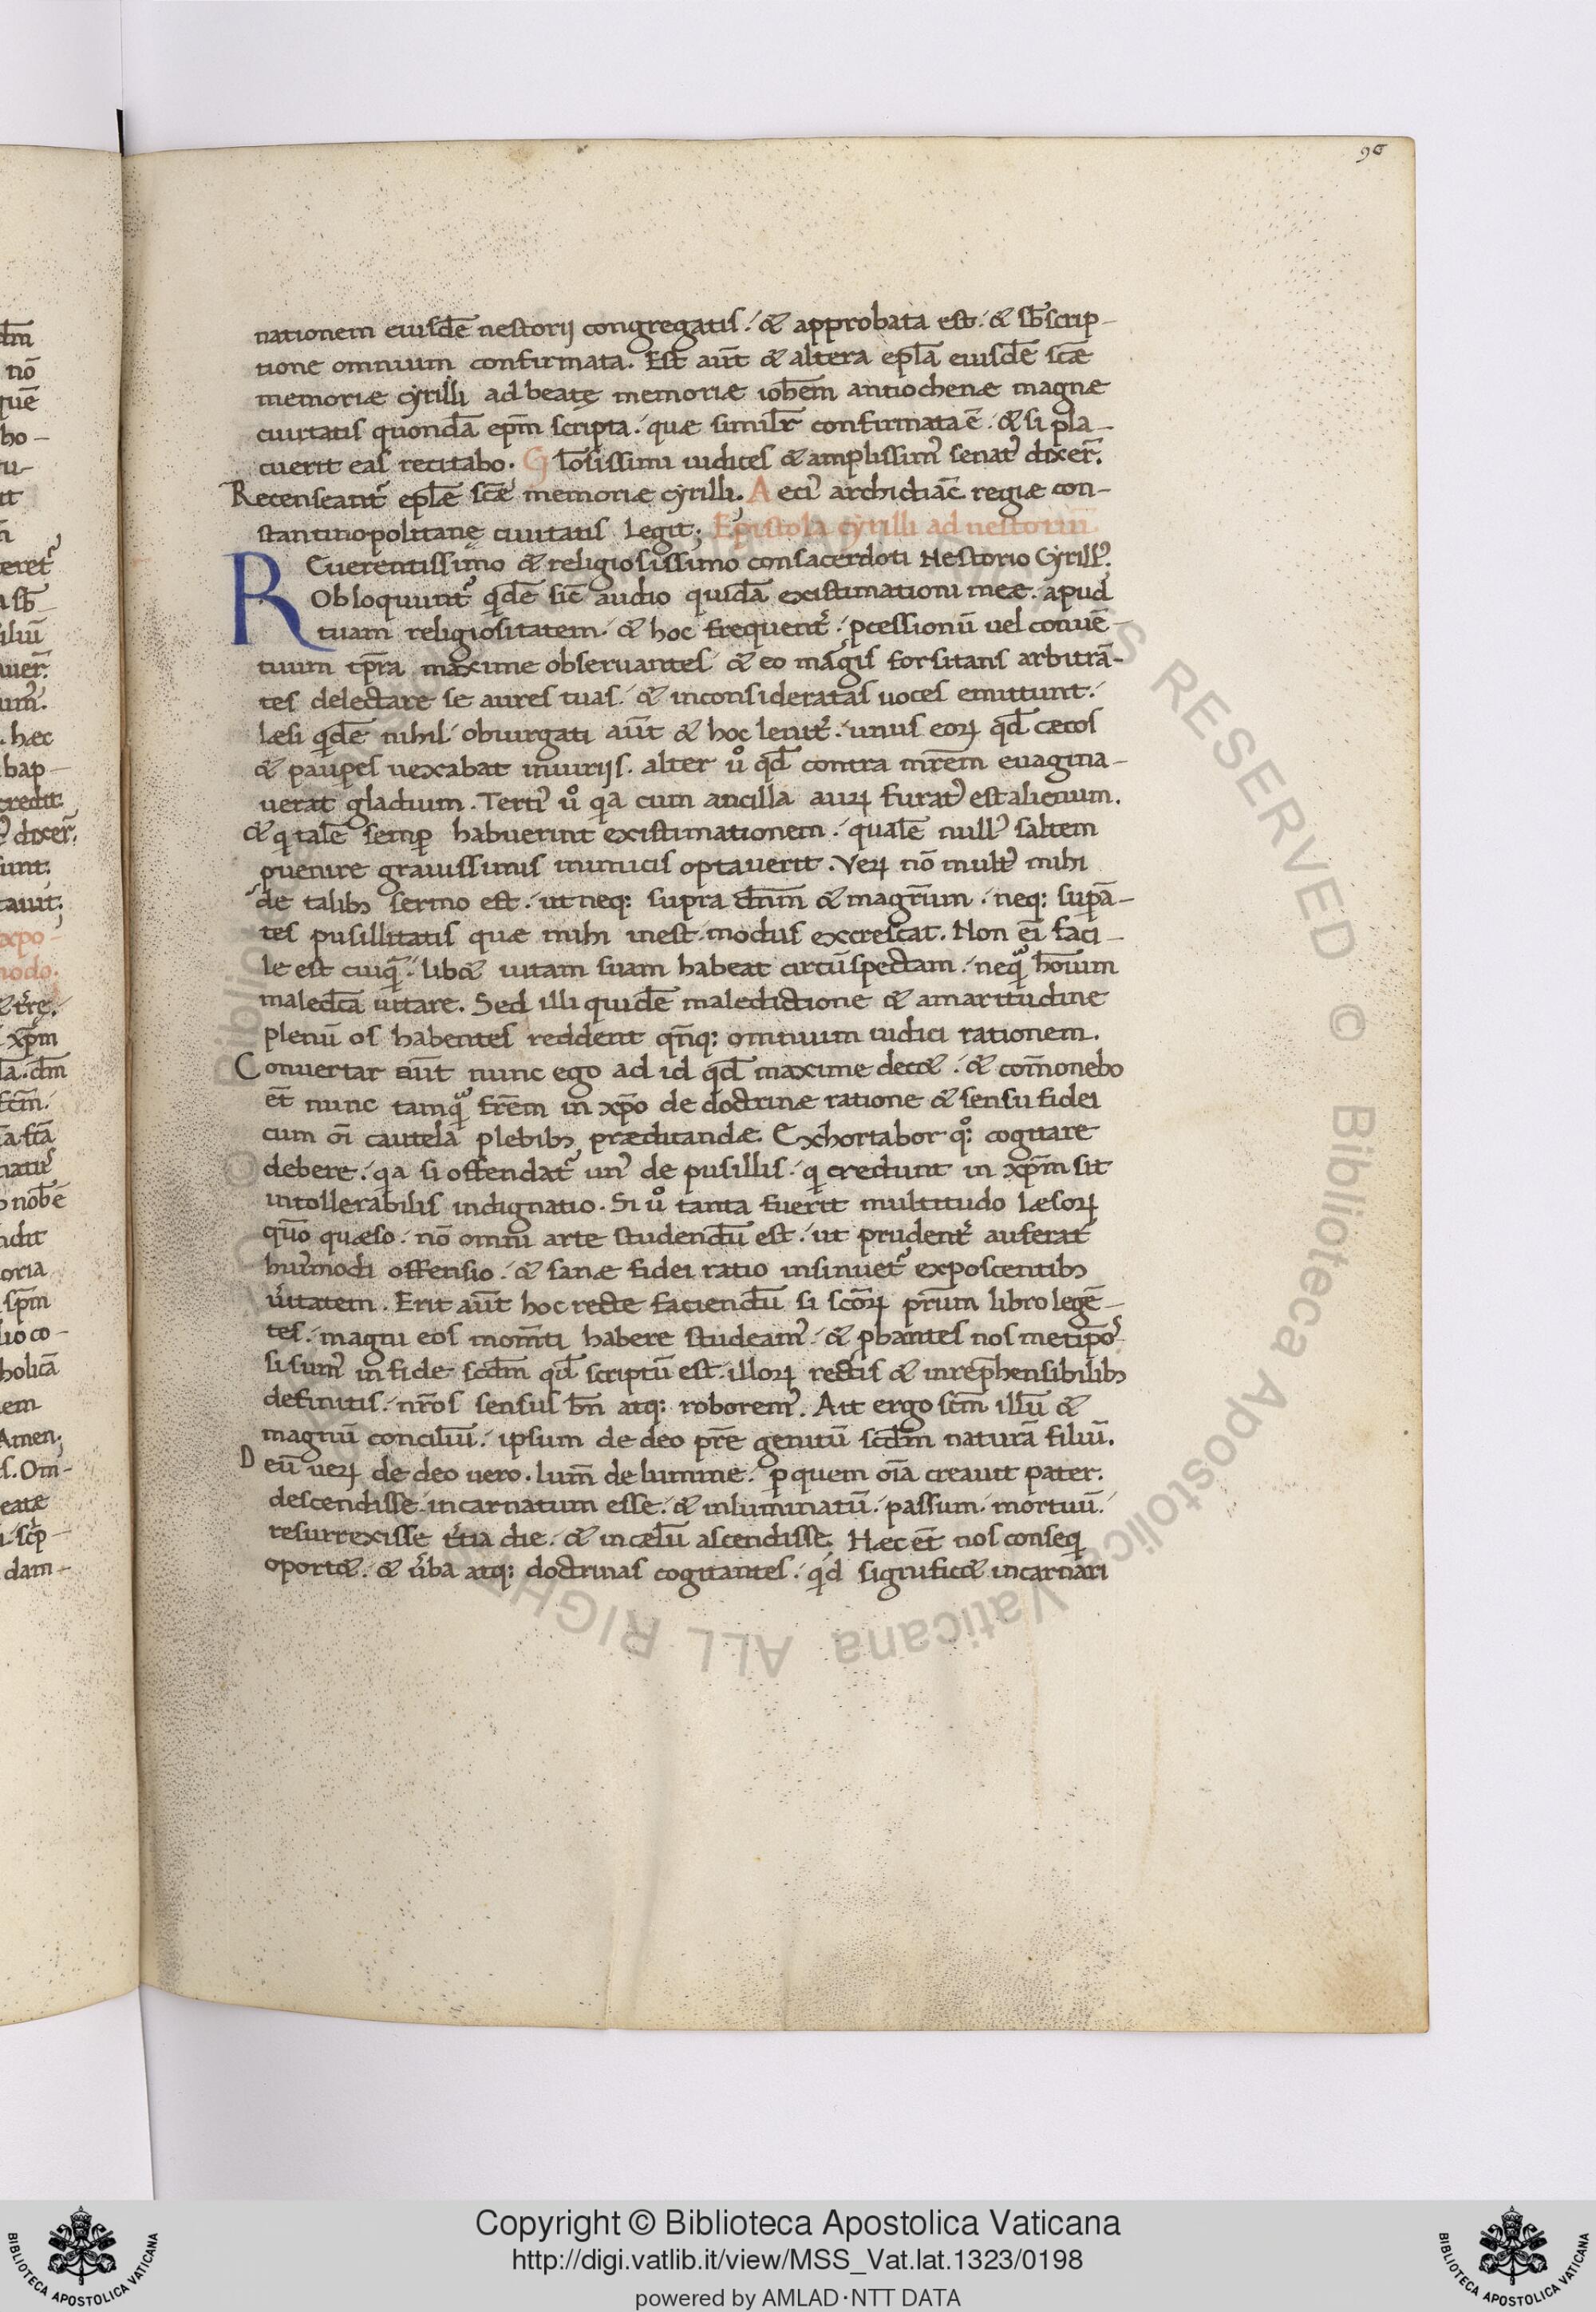 96
nationem eiusdē nestorij congregatis. & approbata est. & sb̄scrip-
tione omnium confirmata. Est aūt & altera epl̄a eiusdē sc̄æ
memoriæ cyrilli ad beatę memoriæ ioh̄em antiochenæ magnæ
ciuitatis quondā ep̄m scripta. quæ simil̄r confirmata ē. & si pla-
cuerit eas recitabo. Gl̄osissimi iudices & amplissimꝰ senatꝰ dixer̄.
Recenseant᷑ epl̄e sc̄e memoriæ cyrilli. Aeciꝰ archidiac̄ regiæ con-
stantinopolitanę ciuitatis legit; Epistola cyrilli ad nestoriū
REuerentissimo & religiosissimo consacerdoti Nestorio Cyrillꝰ.
Obloquunt᷑ qͥdē sic̄ audio quidā existimationi meæ. apud
tuam religiositatem. & hoc frequent᷑. ꝓcessionū uel conuē-
tuum tp̄ra maxime obseruantes. & eo magis forsitans arbitrā-
tes delectare se aures tuas. & inconsideratas uoces emittunt.
Læsi qͥdē nihil. obiurgati aūt & hoc lenit᷑. unus eoꝝ qd̄ cæcos
& pauꝑes uexabat iniurijs. alter uͦ qd̄ contra mr̄em euagina-
uerat gladium. Tertiꝰ uͦ qͥa cum ancilla auꝝ furatꝰ est alienum.
& qͥ talē semꝑ habuerint existimationem. qualē nullꝰ saltem
ꝓuenire grauissimis inimicis optauerit. Veꝝ nō multꝰ mihi
de talibꝫ sermo est. ut neqꝫ supra dn̄m & magr̄ium. neqꝫ sup̄a-
tes pusillitatis quæ mihi inest modus excrescat. Non ei̅ faci-
le est cuiqͣ. lib& uitam suam habeat circūspectam. neqͣ hoīum
maledc̄a uitare. Sed illi quidē maledictione & amaritudine
plenū os habentes reddent qn̄qꝫ omnium iudici rationem.
Conuertar aūt nunc ego ad id qd̄ maxime dec&. & com̄onebo
et̄ nunc tamqͣ fr̄em in xp̄o de doctrinæ ratione & sensu fidei
cum oī cautela plebibꝫ prædicandæ. Exhortabor qͦꝫ cogitare
debere. qͥa si offendat᷑ unꝰ de pusillis. qͥ credunt in xp̄m sit
intollerabilis indignatio. Si uͦ tanta fuerit multitudo læsoꝝ
quō quæso. nō omni arte studendū est. ut prudent᷑ auferat
huꝰmodi offensio. & sanæ fidei ratio insinuet᷑ exposcentibꝫ
ůitatem. Erit aūt hoc recte faciendū si sc̄oꝝ pr̄um libro legē-
tes. magni eos mom̄ti habere studeamꝰ. & ꝓbantes nos metip̄oꝰ
si sumꝰ in fide scd̄m qd̄ scriptū est. illoꝝ rectis & inrep̄hensibilibꝫ
definitis. nr̄os sensus bn̄ atqꝫ roboremꝰ. Ait ergo sc̄m illū &
magnū conciliū. ipsum de deo pr̄e genitū scd̄m naturā filiū.
Deū ueꝝ de deo uero. lum̄ de lumine. ꝑ quem oīa creauit pater.
descendisse. incarnatum esse. & inhuminatū. passum. mortuū.
resurrexisse t᷑tia die. & in cælū ascendisse. Hæc et̄ nos conseqͥ
oport&. & ůba atqꝫ doctrinas cogitantes. qͥd signific& incarnari
Copyright © Biblioteca Apostolica Vaticana
http://digi.vatlib.it/view/MSS_Vat.lat.1323/0198
powered by AMLAD·NTT DATA